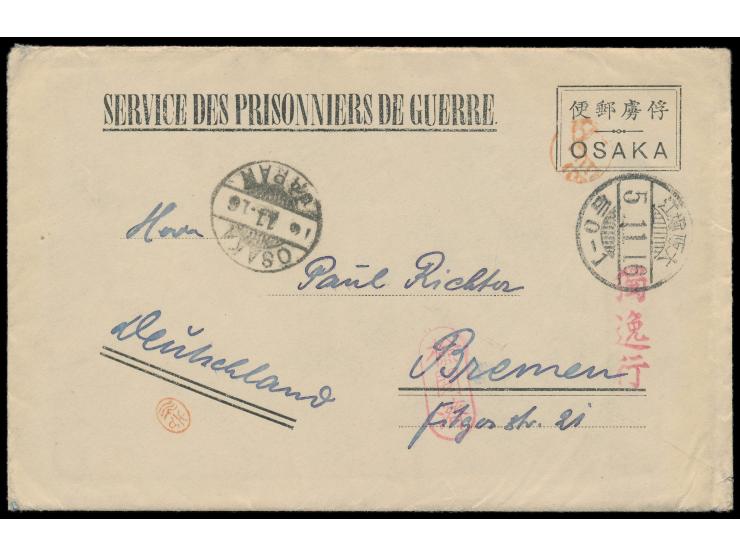 SERVICE DES PRISONNIERS DE GUERRE.
便郵虜俘
OSAKA
OSAKA
JAPAN
5.11.16
獨逸行
Herrn
Paul Richter
Deutschland
Bremen
Fitgerstr. 21